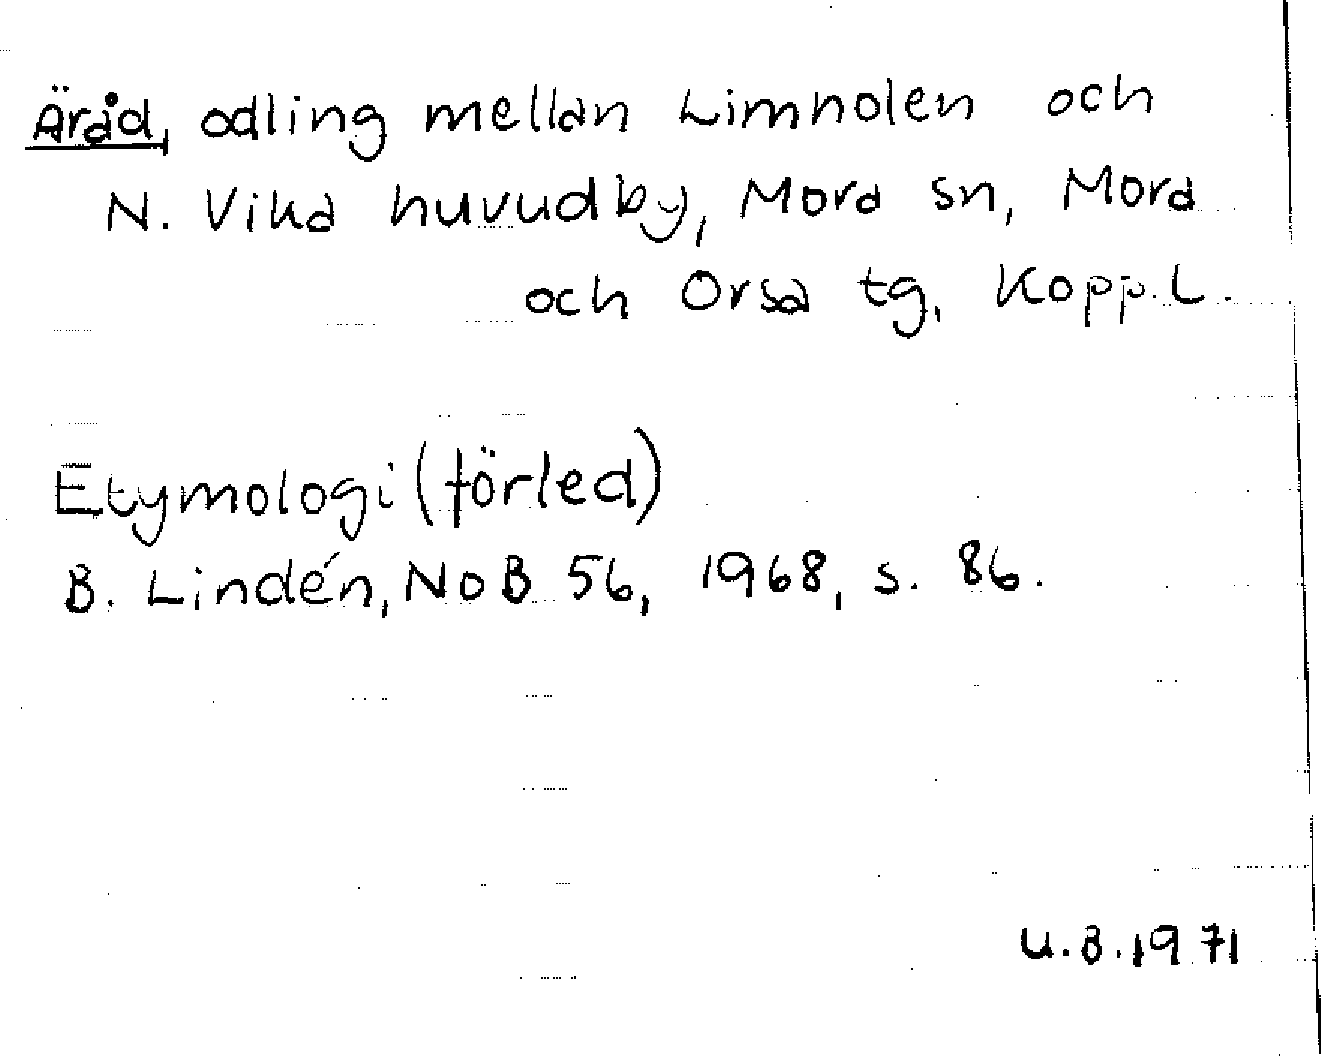 Äråd, odling mellan Limholen och
N. Vika huvudby, Mora sn, Mora
och Orsa tg, Kopp.L.
Etymologi (förled)
B. Lindén, NoB 56, 1968, s. 86.
U.B.1971